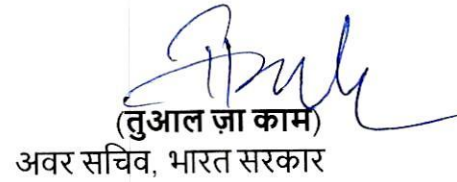 (तुआल ज़ा काम)
अवर सचिव, भारत सरकार